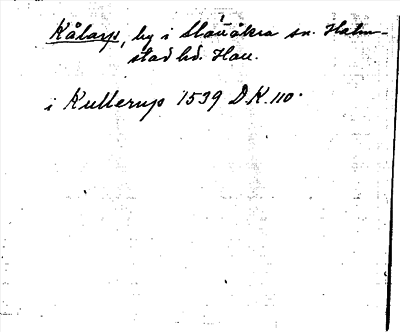 Kålarp, by i Slättåkra sn. Halm-
stad hd. Hall.
i Kullerup 1539 DK. 110.